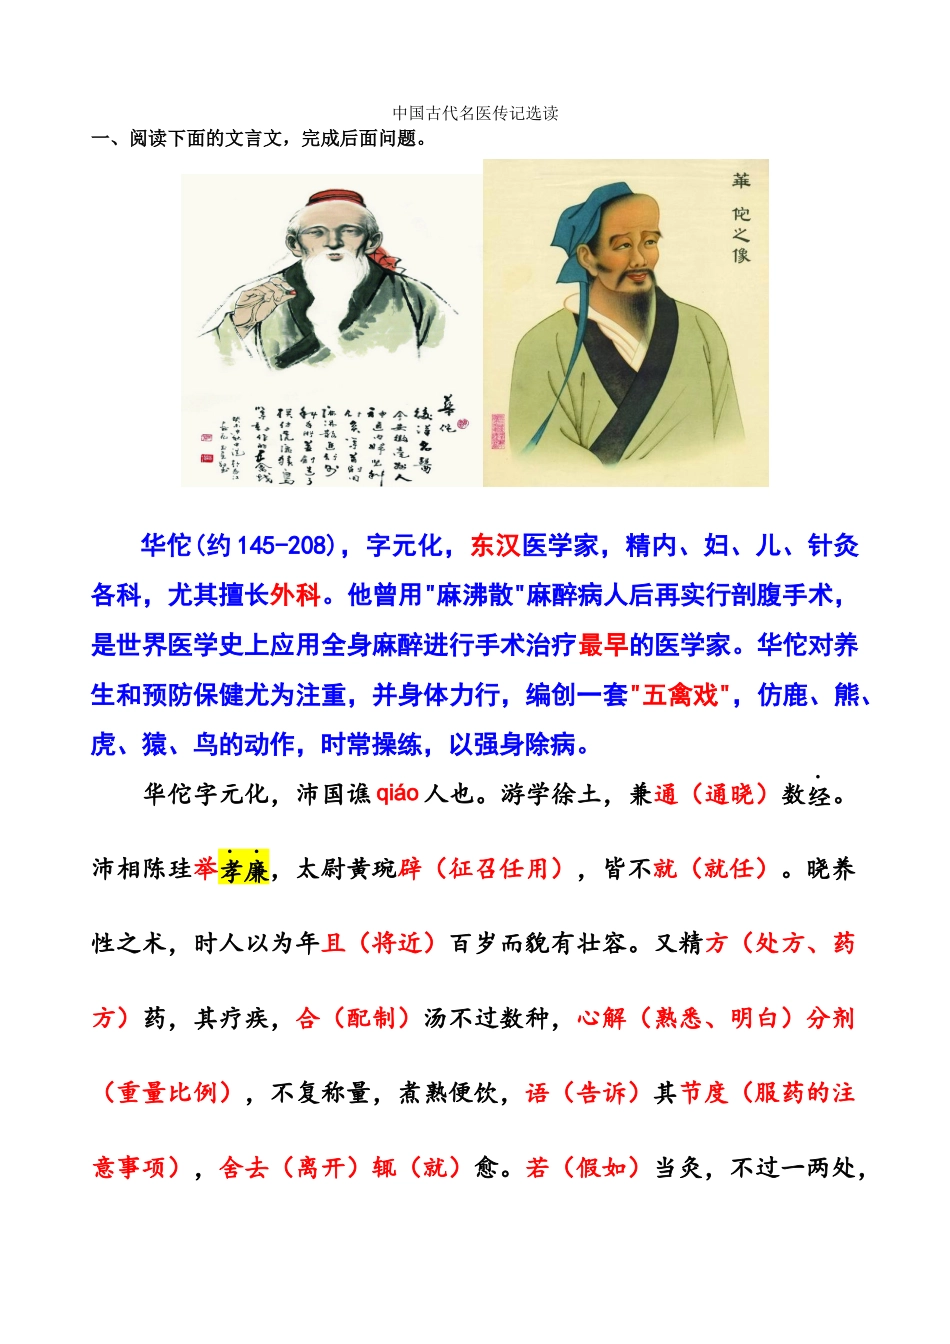 中国古代名医传记选读
一、阅读下面的文言文，完成后面问题。
華佗之像
華佗
华佗(约 145-208)，字元化，东汉医学家，精内、妇、儿、针灸
各科，尤其擅长外科。他曾用"麻沸散"麻醉病人后再实行剖腹手术，
是世界医学史上应用全身麻醉进行手术治疗最早的医学家。华佗对养
生和预防保健尤为注重，并身体力行，编创一套"五禽戏"，仿鹿、熊、
虎、猿、鸟的动作，时常操练，以强身除病。
华佗字元化，沛国谯 qiáo 人也。游学徐土，兼通（通晓）数经。
沛相陈珪举孝廉，太尉黄琬辟（征召任用），皆不就（就任）。晓养
性之术，时人以为年且（将近）百岁而貌有壮容。又精方（处方、药
方）药，其疗疾，合（配制）汤不过数种，心解（熟悉、明白）分剂
（重量比例），不复称量，煮熟便饮，语（告诉）其节度（服药的注
意事项），舍去（离开）辄（就）愈。若（假如）当灸，不过一两处，